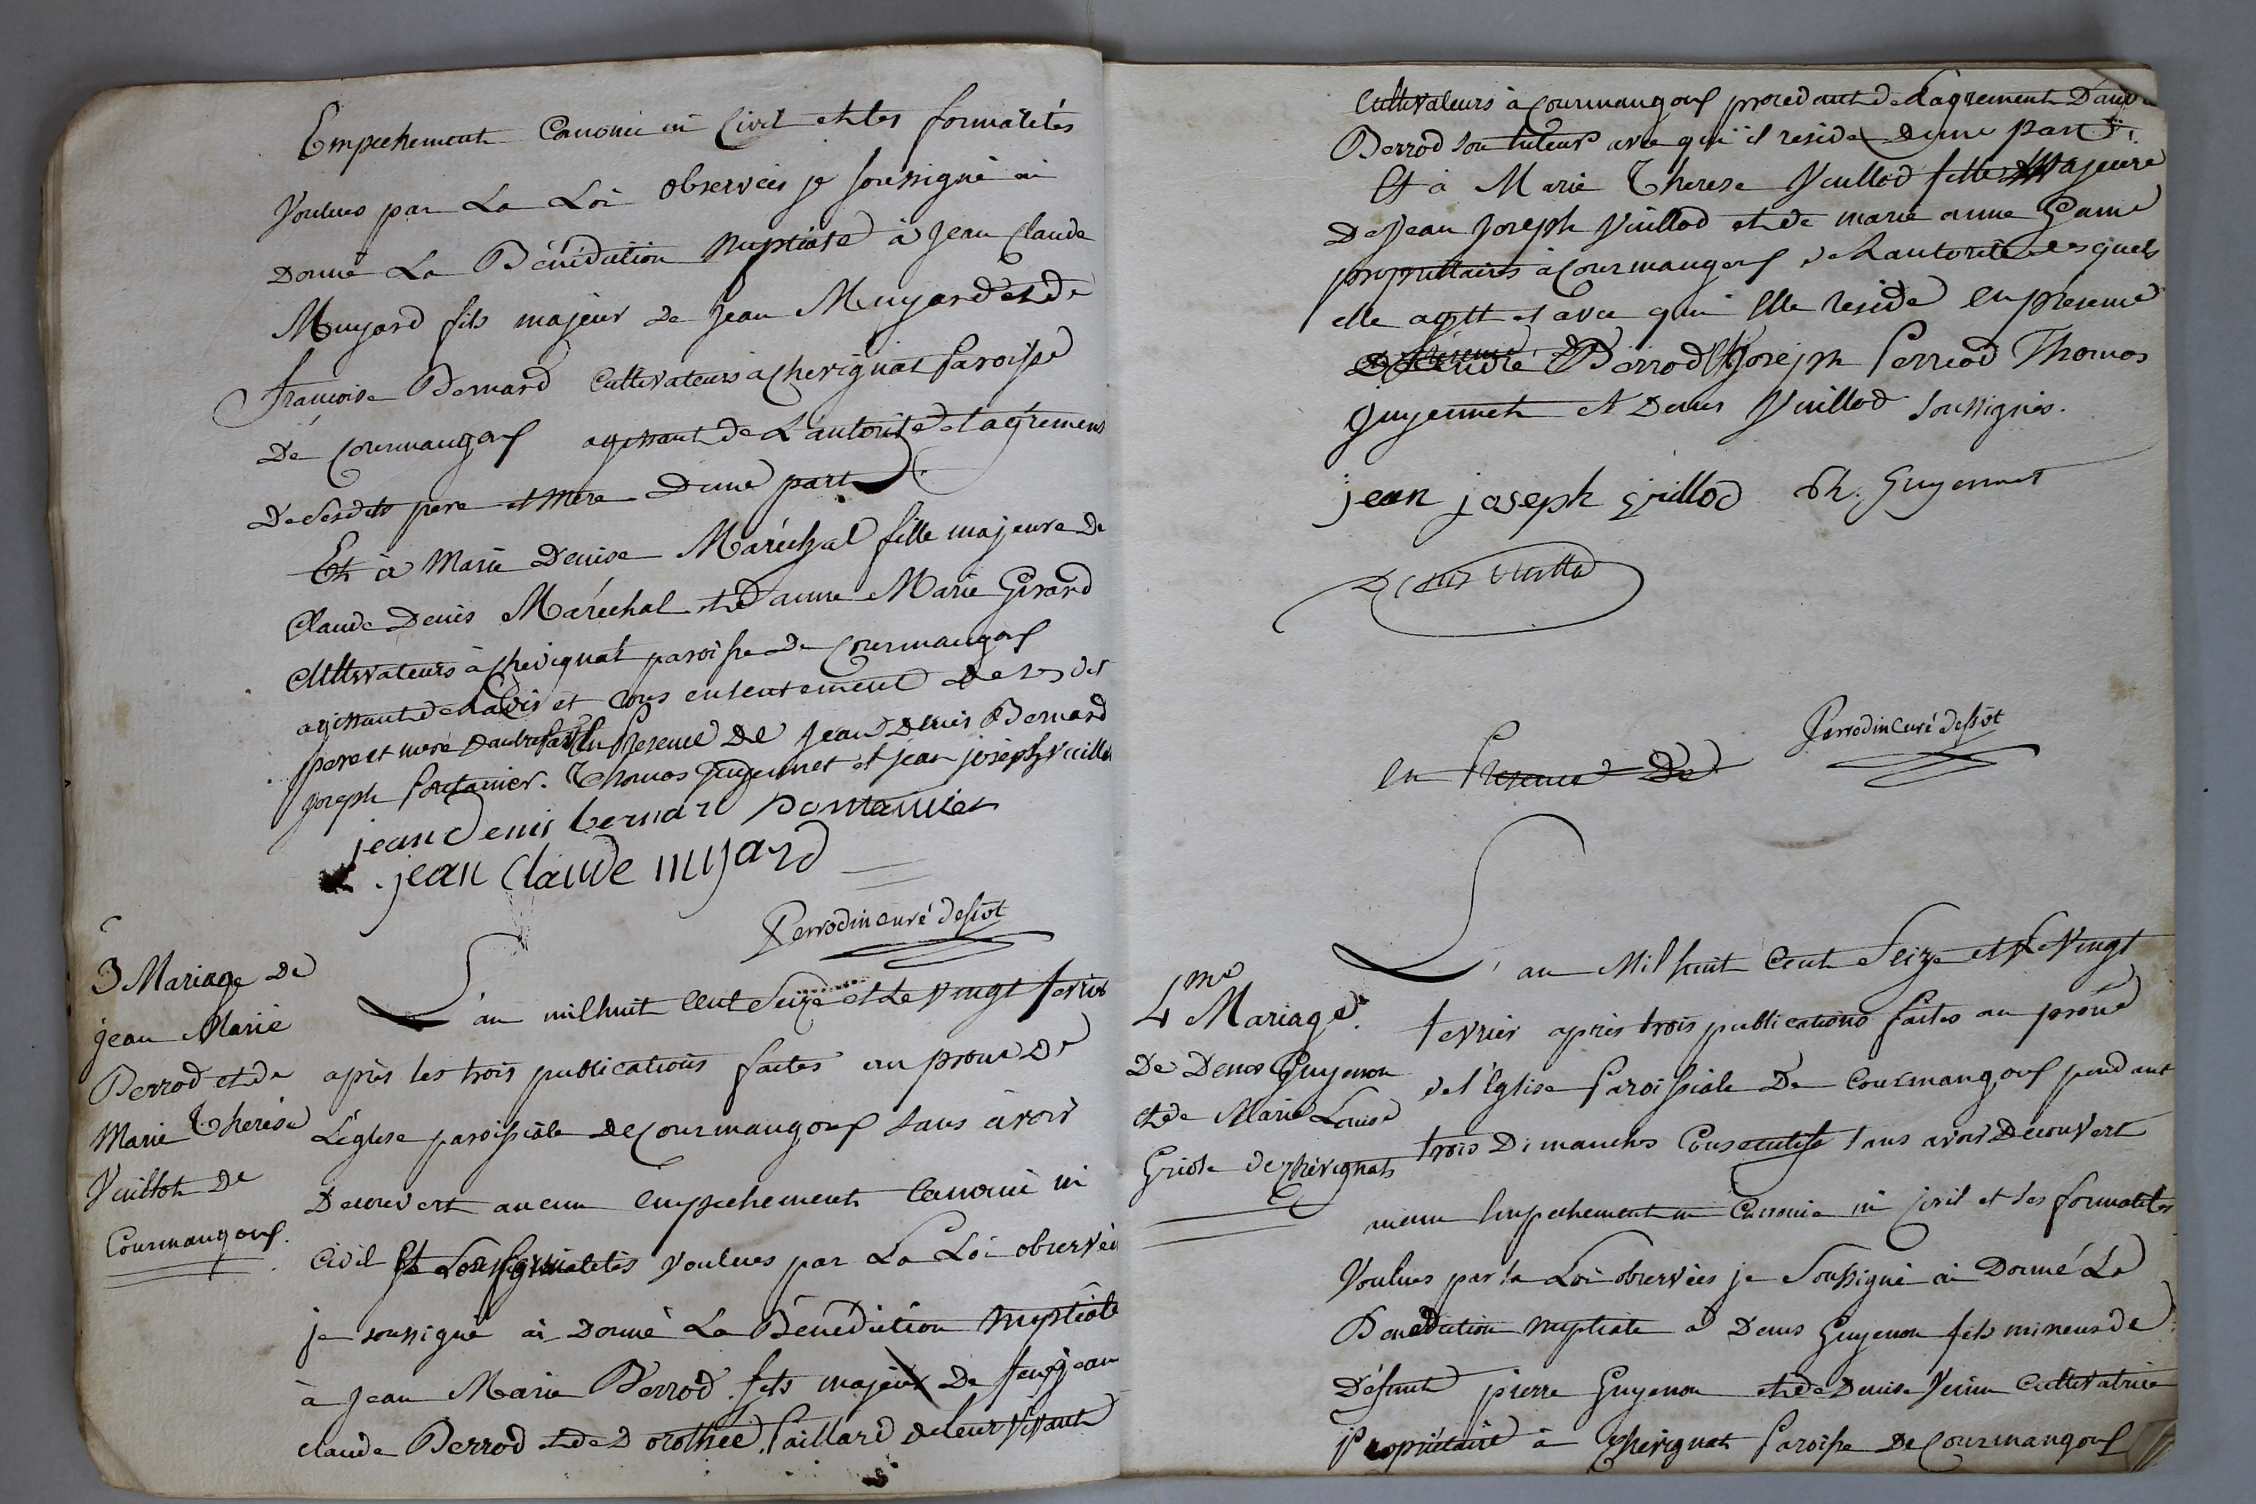 Empechement Canonic ni Civil et les formalités
Voulues par La Loi observées je soussigné ai
Donné La Bénédiction Nuptiale à Jean Claude
Muyard fils majeur de Jean Muyard et de
francoise Bernard Cultivateurs à chevignat Paroisse
De Courmangoux agissant de L'autorité et agrement
De sesdits pere et Mere Dune part
Et à Marie Denise Maréchal fille majeure de
Claude Denis Maréchal et d'anne Marie Girard
Cultivateurs à chevignat paroisse de Courmangoux
agissant de L'avis et Consentement de ses dit
pere et mere d'autre part En Presence De Jean Denis Bernard
joseph Pontanier. Thomas Guyennet et jean joseph vuillod
jean Denis bernard pontanier
jean Claude myard
Perrodin curé dessot
3 Mariage De
jean Marie
Perrod et de
Marie Therése
Vuillot De
Courmangoux.
L'an mil huit Cent Seize et Le vingt fevrier
après les trois publications faites au prone De
L'église paroissiale de Courmangoux sans avoir
Decouvert aucun empechement Canonic ni
Civil Et Les formalités voulues par La Loi observées
je soussigné ai Donné La Bénédiction Nuptiale
à Jean Marie Perrod fils majeur De feu jean
claude Perrod et de Dorothée Paillard de leur vivant
Cultivateurs à Courmangoux procedant de L'agrement D'andré
Perrod son tuteur avec qui il reside Dune part.
Et à Marie Therese Vuillod fille Majeure
De Jean Joseph Vuillod et de marie anne Game
propriettaires à Courmangoux de L'autorité desquels
elle agit et avec qui Elle reside En presence
Presence
D'André Perrod Joseph Perriod Thomas
Guyennet et Denis Vuillod soussignés.
jean joseph vuillod Th. Guyennet
Denis Vuillod
Perrodin Curé dessot
En Presence De
4me Mariage.
De Denis Guyenon
et de Marie Louise
Griot de chevignat
L'an Mil huit Cent Seize et Le Vingt
fevrier après trois publications faites au prône
de l'Eglise Paroissiale De Courmangoux pendant
trois Dimanches Consecutifs sans avoir Decouvert
aucun Empechement ni Canonic ni Civil et les formalités
Voulues par la Loi observées je Soussigné ai Donné La
Benediction nuptiale à Denis Guyenon fils mineur de
Défunt pierre Guyenon et de Denise Venin Cultivatrice
Propriétaire à Chevignat Paroisse De Courmangoux